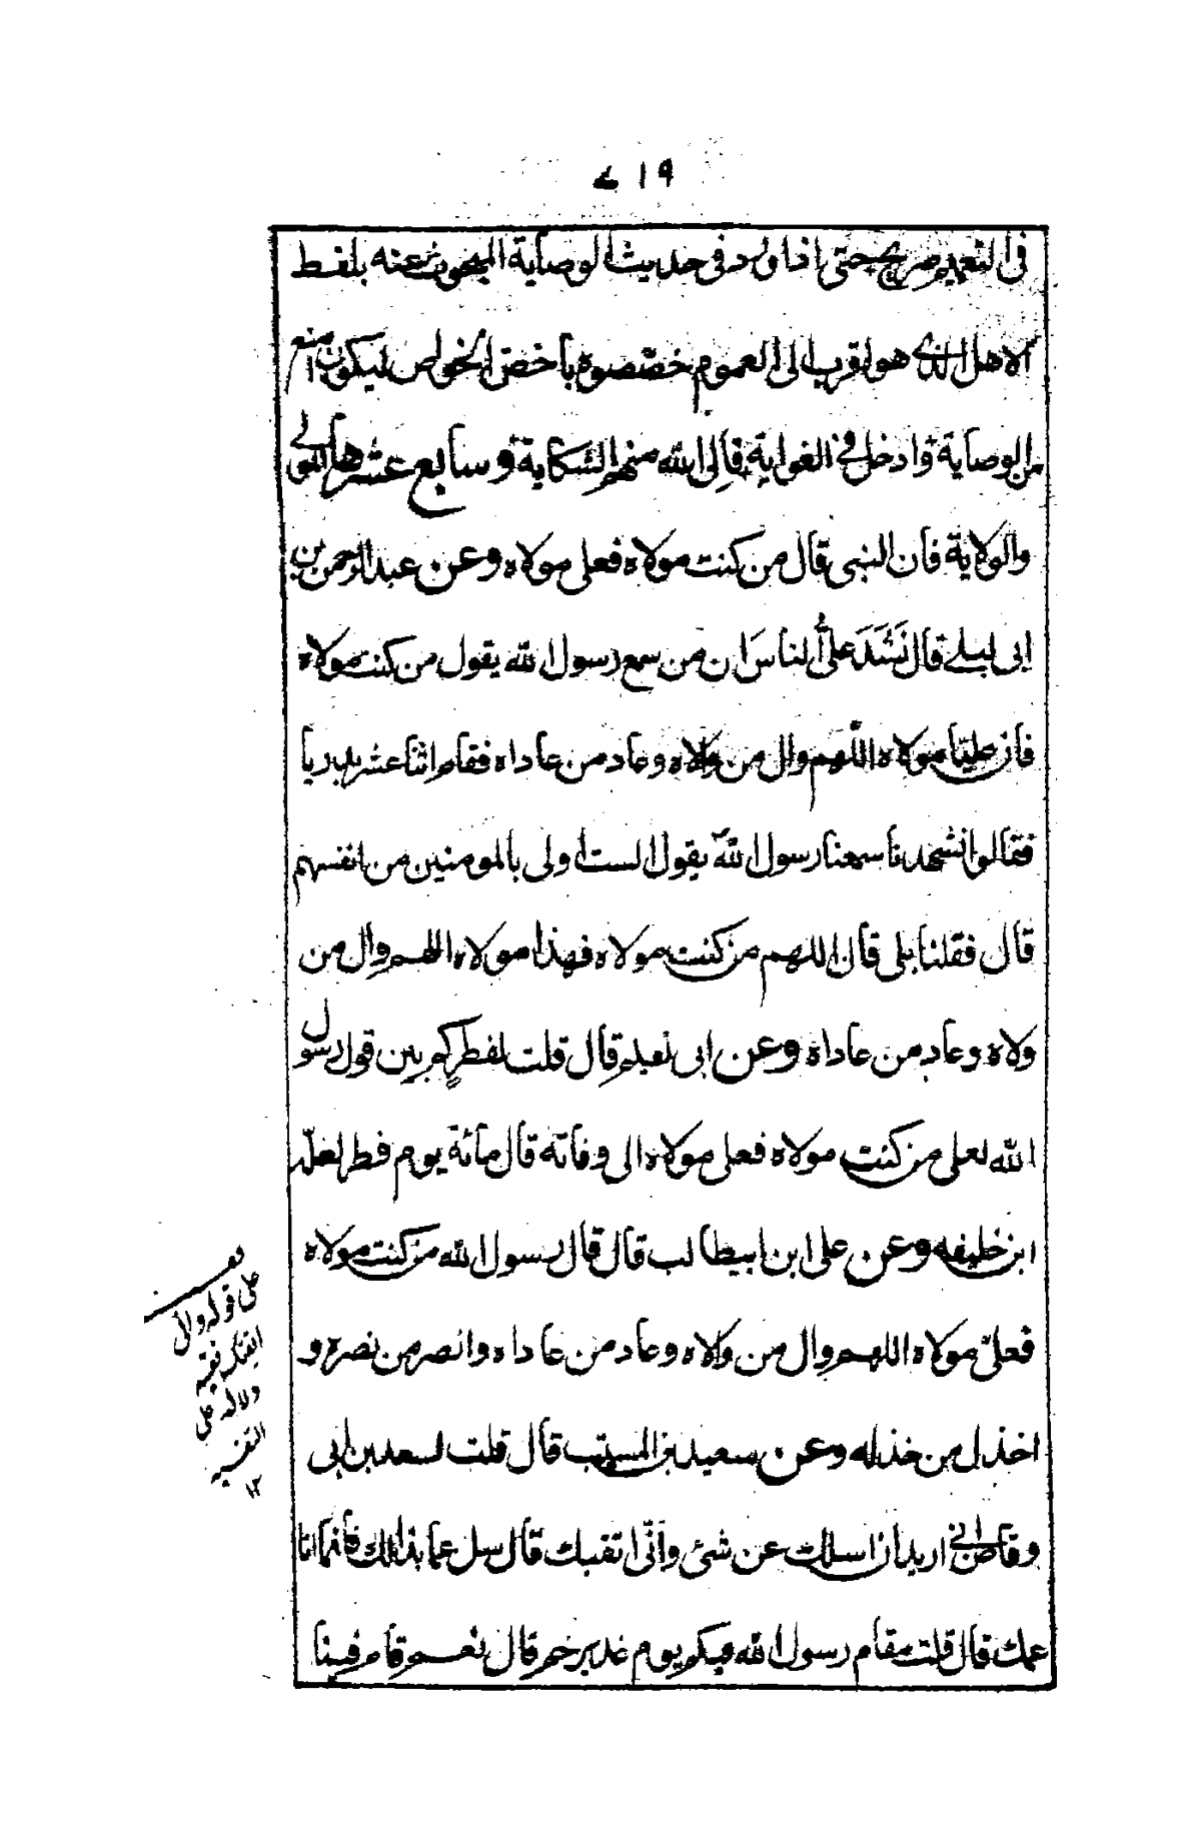 ٦١٩
فى التعميم صريح حتى اذا ورد فى حديث الوصاية المبحوث عنه بلفظ
الاهل الذى هو اقرب الى العموم خصّصوه باخصّ الخواص ليكون امنع
من الوصاية وادخل فى الغواية فالى الله منهم الشكاية وسابع عشرها التولى
والولاية فان النبى قال من كنت مولاه فعلى مولاه وعن عبد الرحمن بن
ابى ليلے قال نَشَدَ علىٌّ الناسَ ان من سمع رسول الله يقول من كنت مولاه
فان عليّا مولاه اللّهم وال من والاه وعاد من عاداه فقام اثنا عشر بدريا
فقالوا نشهد نا سمعنا رسول اللهؐ يقول الست اولى بالمومنين من انفسهم
قال فقلنا بلى قال اللهم من كنت مولاه فهذا مولاه اللهم وال من
ولاه وعاد من عاداه وعن ابى نعيم قال قلت لفطرٍ كم بين قول رسول
الله لعلى من كنت مولاه فعلى مولاه الى وفاته قال مائة يوم فطر لعلّه
ابن خليفه وعن على ابن ابيطالب قال قال رسول الله من كنت مولاه
فعلىّ مولاه اللهم وال من والاه وعاد من عاداه وانصر من نصره و
اخذل من خذله وعن سعيد بن المسيّب قال قلت لسعد بن ابى
وقاص انى اريد ان اسئلك عن شئ وانّى اتقيك قال سل عما بدا لك فانما انا
عمك قال قلت مقام رسول الله فيكم يوم غدير خم قال نعم قام فينا
على قوله وانى
اتقيك فيه
دلالة على
التقيه
١٢